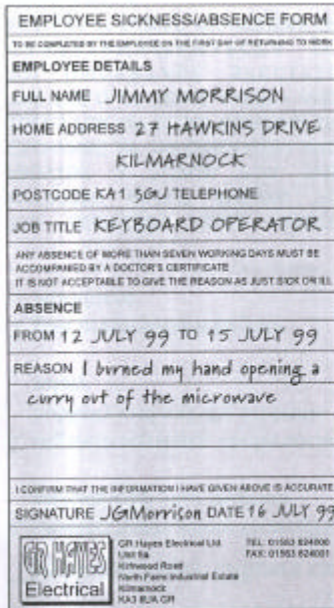 EMPLOYEE SICKNESS/ABSENCE FORM
TO BE COMPLETED BY THE EMPLOYEE ON THE FIRST DAY OF RETURNING TO WORK
EMPLOYEE DETAILS
FULL NAME JIMMY MORRISON
HOME ADDRESS 27 HAWKINS DRIVE
KILMARNOCK
POSTCODE KA1 5GJ TELEPHONE
JOB TITLE KEYBOARD OPERATOR
ANY ABSENCE OF MORE THAN SEVEN WORKING DAYS MUST BE
ACCOMPANIED BY A DOCTOR'S CERTIFICATE
IT IS NOT ACCEPTABLE TO GIVE THE REASON AS JUST SICK OR ILL
ABSENCE
FROM 12 JULY 99 TO 15 JULY 99
REASON I burned my hand opening a
curry out of the microwave
I CONFIRM THAT THE INFORMATION I HAVE GIVEN ABOVE IS ACCURATE
SIGNATURE JGMorrison DATE 16 JULY 99
GR HAYES
Electrical
GR Hayes Electrical Ltd
Unit 9a
Kirkwood Road
North Farm Industrial Estate
Kilmarnock
KA3
TEL: 01563 624000
FAX: 01563 624001